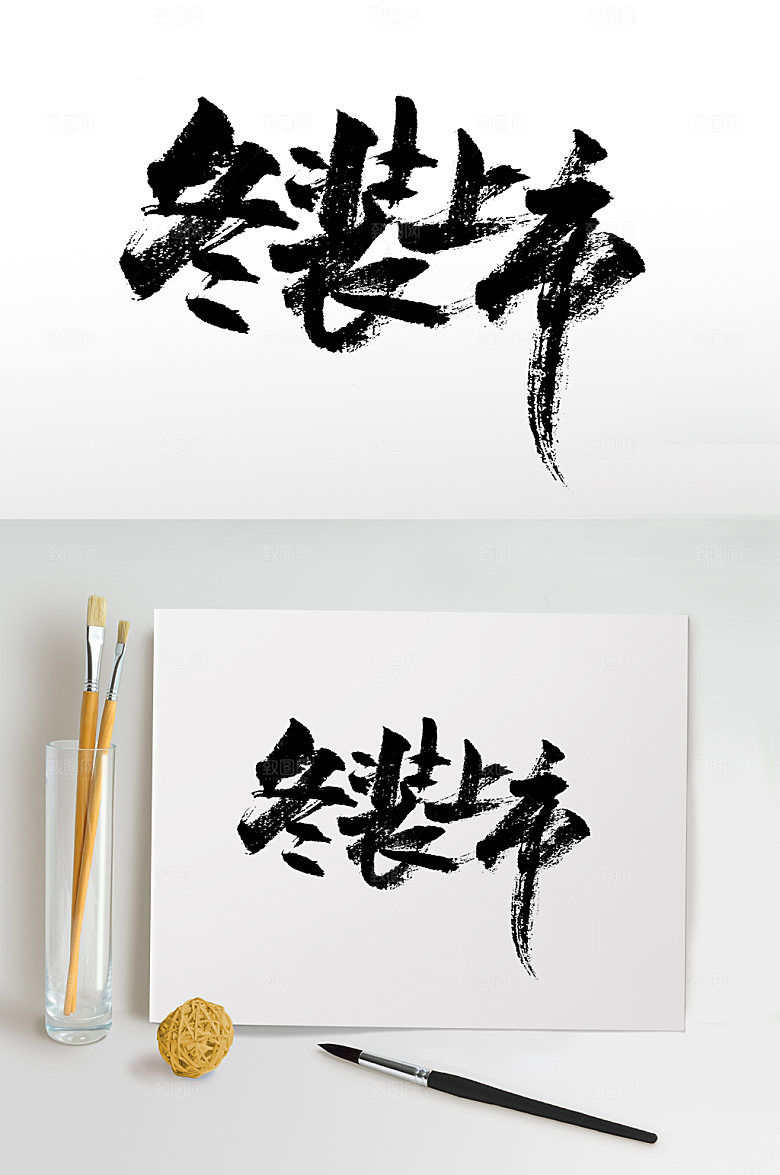 冬装上市
冬装上市